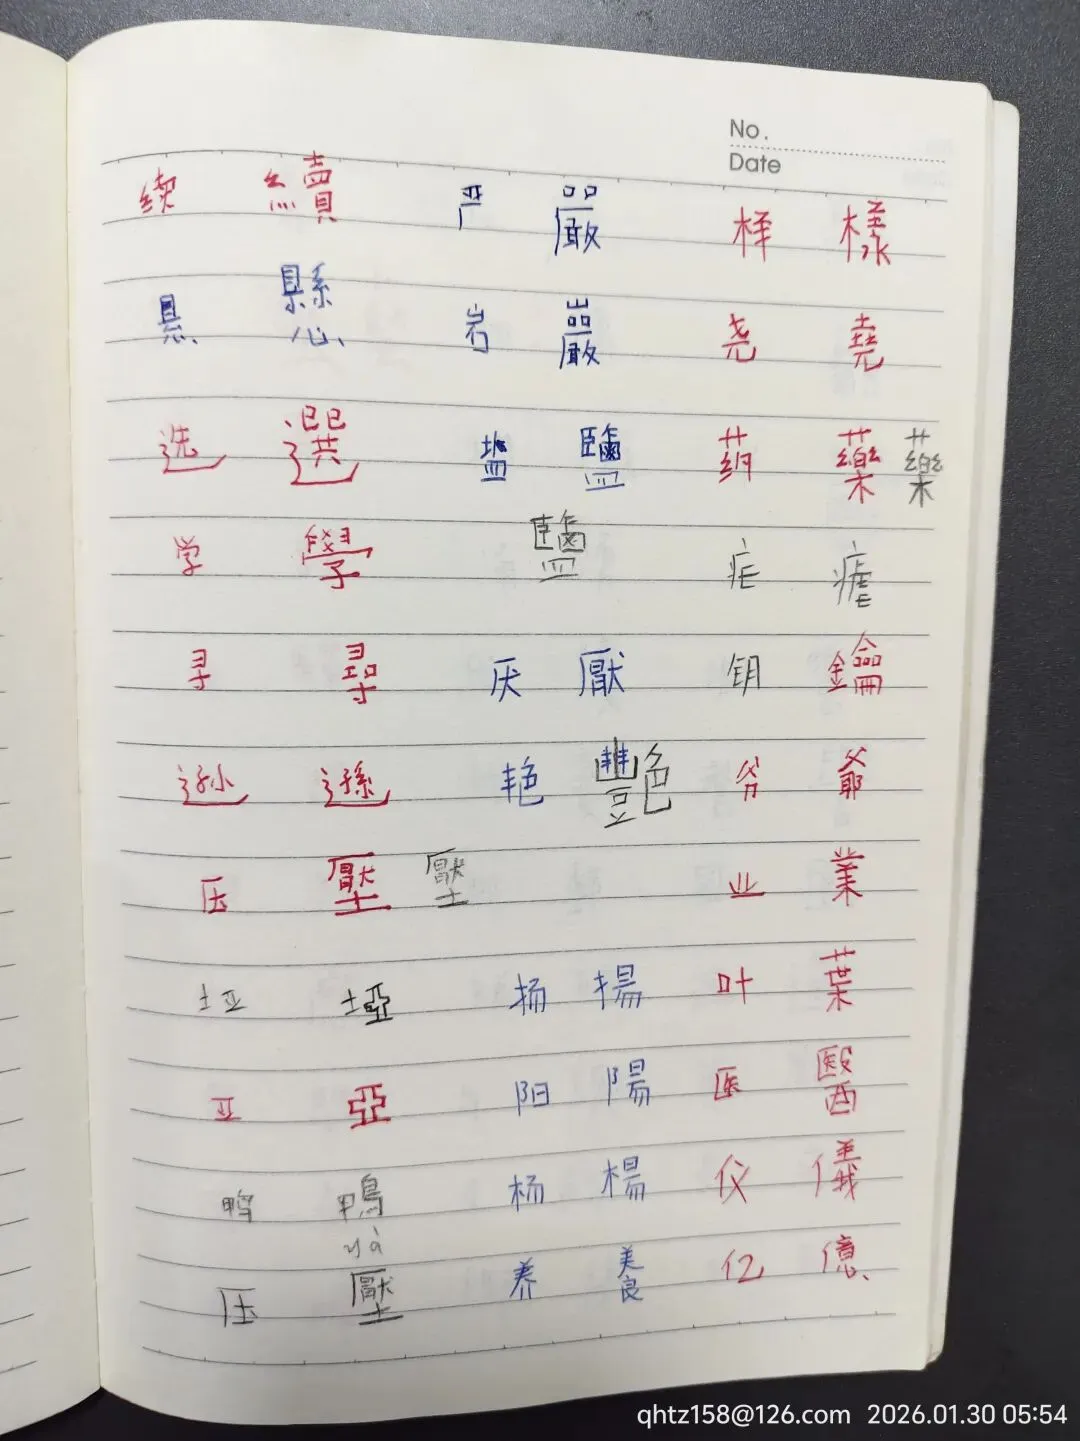 No.
Date
续 續 严 嚴 样 樣
悬 懸 岩 巖 尧 堯
选 選 盐 鹽 药 藥 藥
学 學 鹽 疟 瘧
寻 尋 厌 厭 钥 鑰
逊 遜 艳 豔 爷 爺
压 壓 壓 业 業
垭 埡 扬 揚 叶 葉
亚 亞 阳 陽 医 醫
鸭 鴨 杨 楊 仪 儀
yà
压 壓 养 養 亿 億
qhtz158@126.com 2026.01.30 05:54